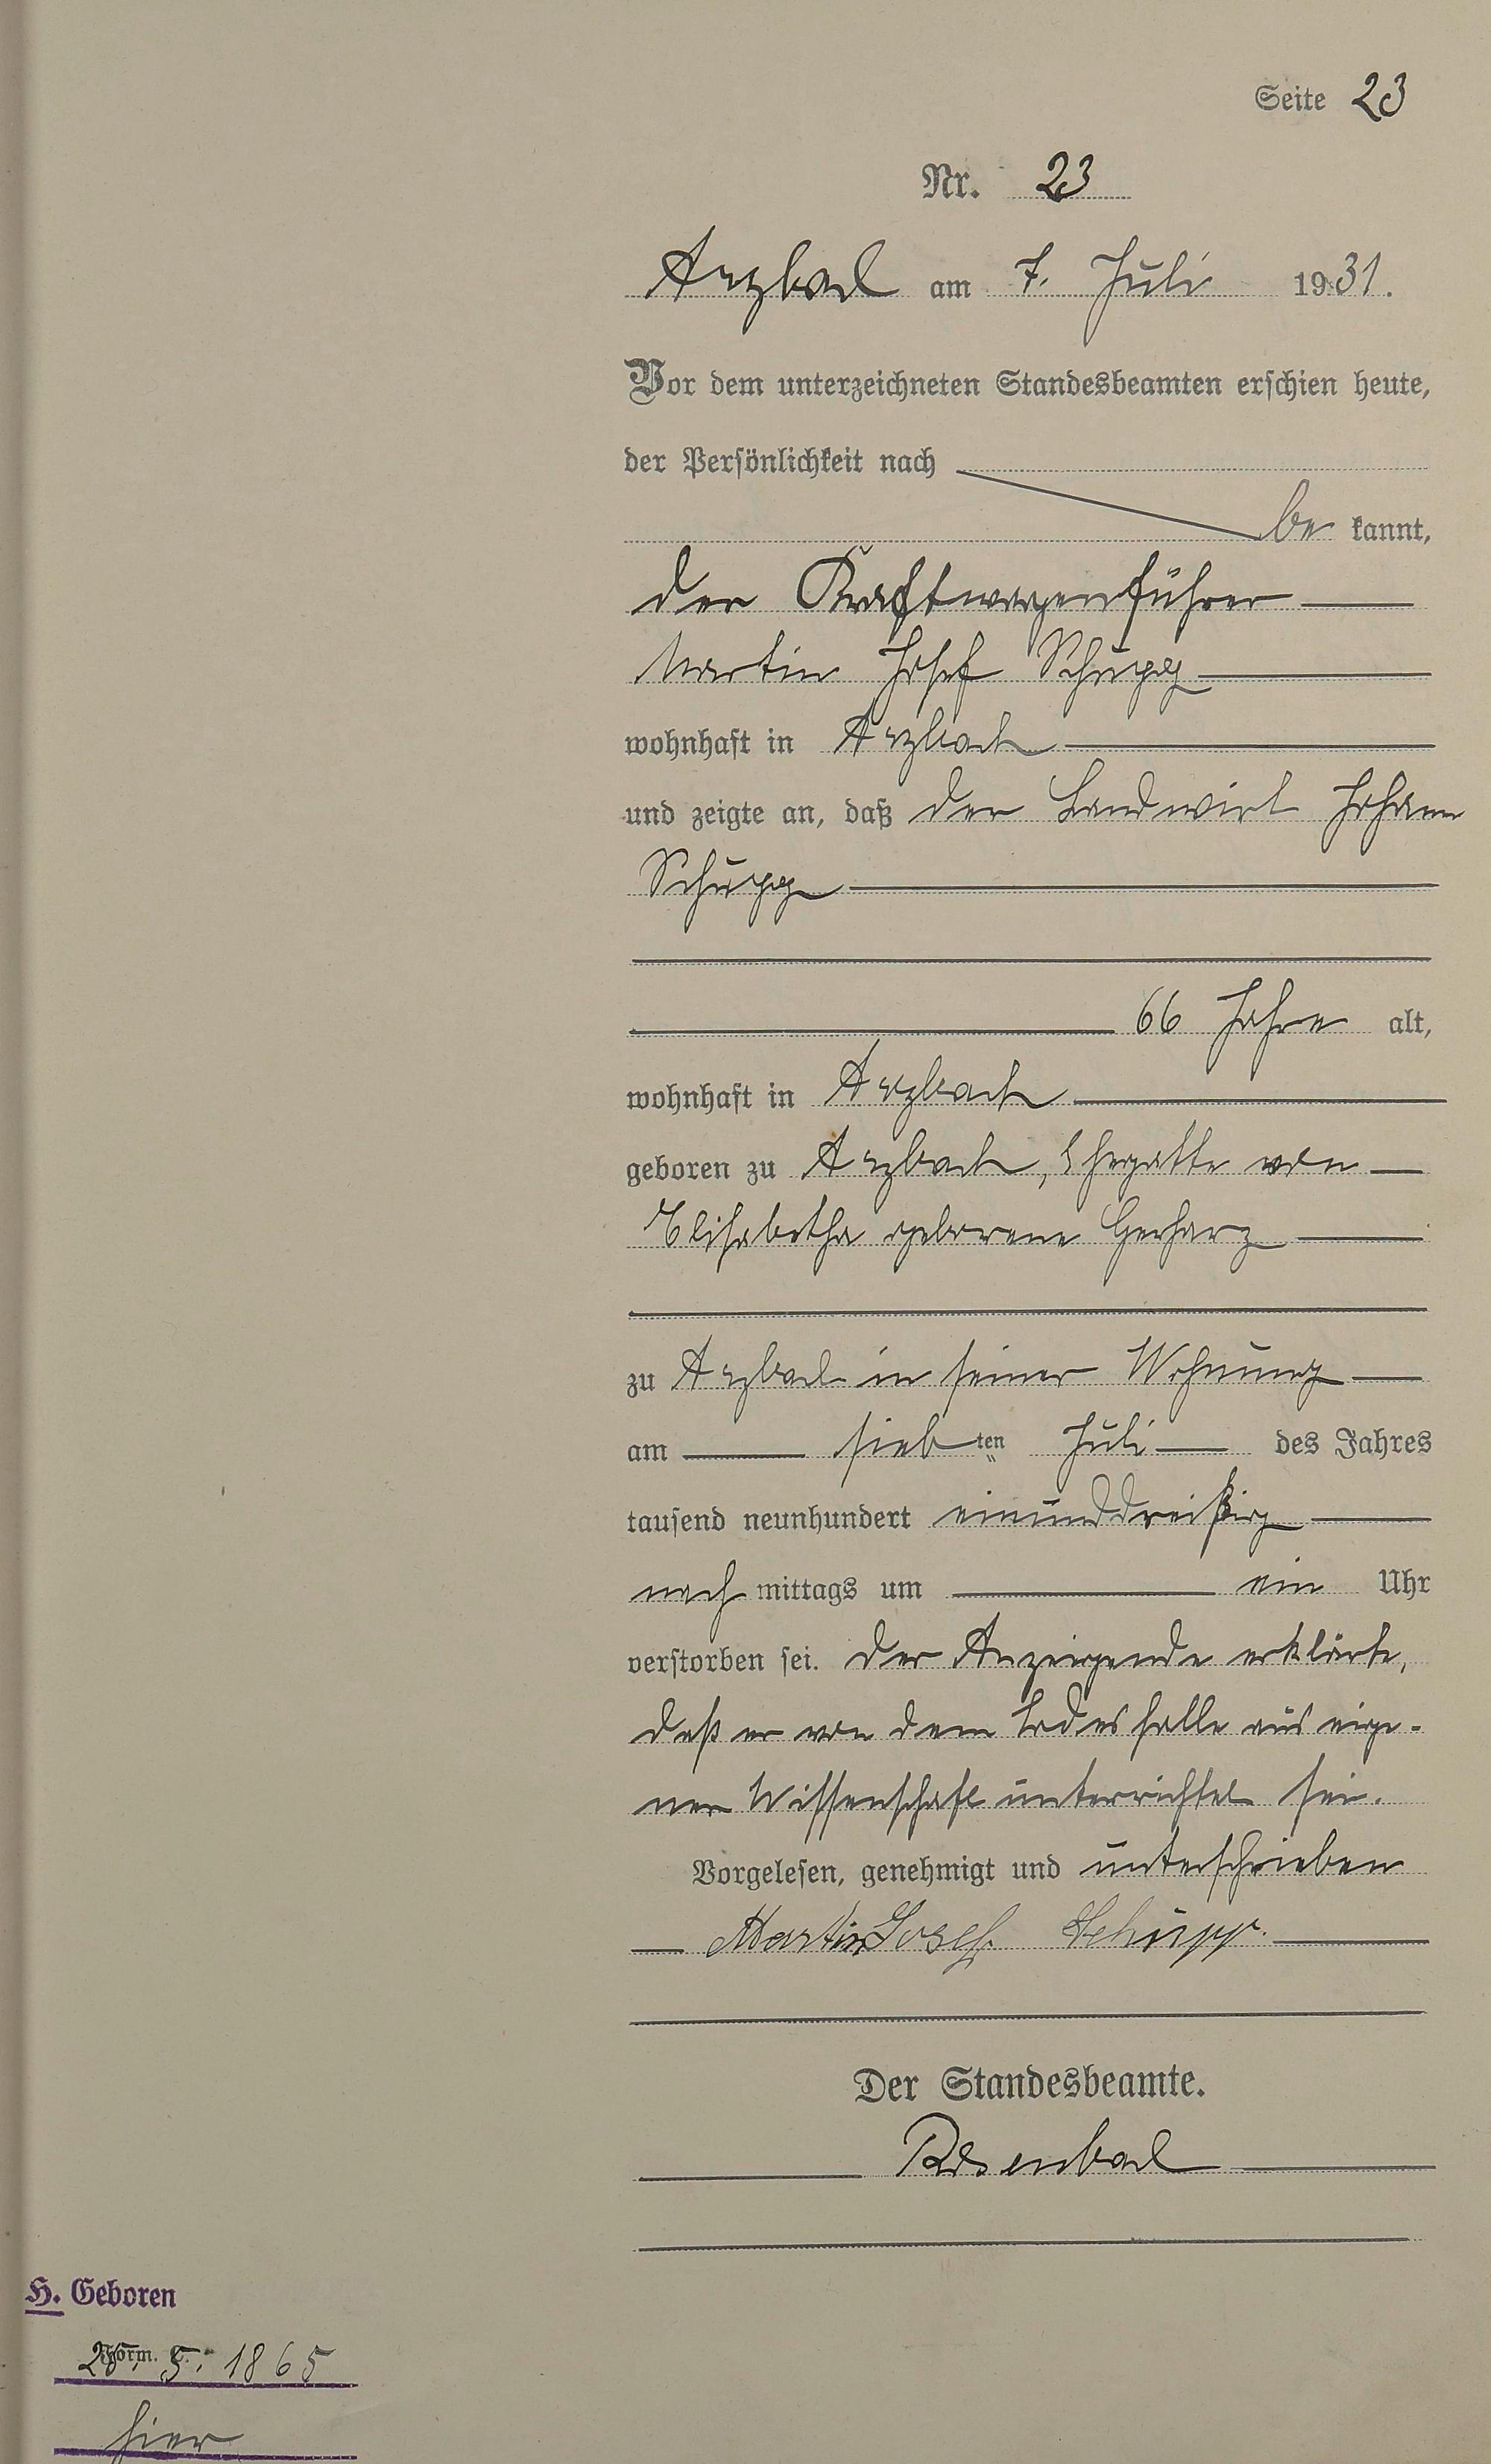 Seite 23
Nr. 23
Arzbach am 7. Juli 1931.
Vor dem unterzeichneten Standesbeamten erschien heute,
der Persönlichkeit nach
be kannt,
der Kraftwagenführer
Martin Josef Schupp
wohnhaft in Arzbach
und zeigte an, daß der Landwirt Johann
Schupp
66 Jahre alt,
wohnhaft in Arzbach
geboren zu Arzbach, Ehegatte von
Elisabetha geborene Gerharz
zu Arzbach in seiner Wohnung
am sieb ten Juli des Jahres
tausend neunhundert einunddreißig
nach mittags um ein Uhr
verstorben sei. Der Anzeigende erklärte,
daß er von dem Todesfalle aus eige-
ner Wissenschaft unterrichtet sei.
Vorgelesen, genehmigt und unterschrieben
Martin Josef Schupp.
Der Standesbeamte.
Rosenbach
H. Geboren
Form. C.
25. 5. 1865
hier